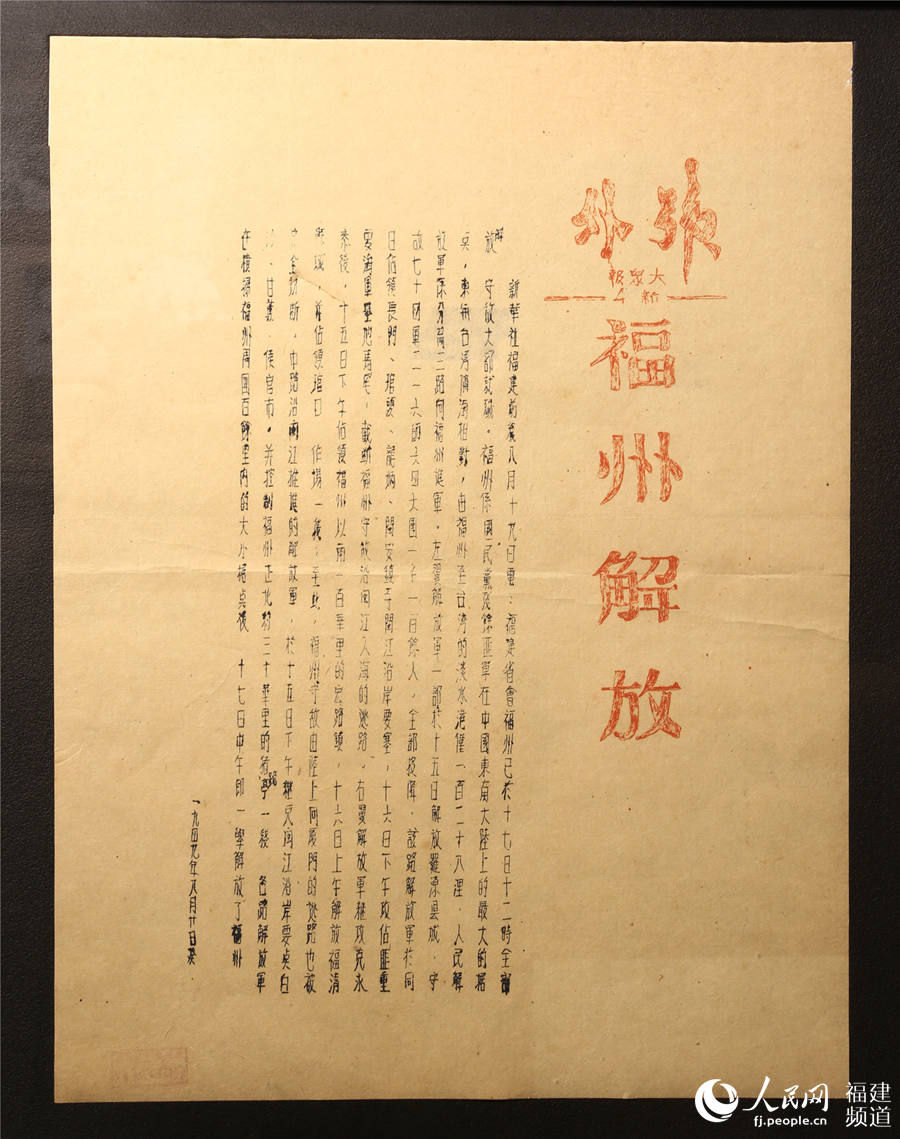 號外
大眾報
福州解放
新華社福建前綫八月十九日電：福建省會福州已於十七日十二時全部
解放　守敌大部就殲。福州係國民黨殘餘匪軍在中國東南大陸上的最大的据
点，東與台湾隔海相对，由福州至台湾的淡水港僅一百二十八浬．人民解
放軍係分兩三路向福州進軍。左翼解放軍一部於十五日解放羅源县城．守
敌七十四軍二一六師六四六團一千一百餘人，全部投降．該路解放軍於同
日佔領長門、琯頭、龍如、閩安鎮等閩江沿岸要塞，十六日下午攻佔匪重
要海軍基地馬尾，截断福州守敌沿闽江入海的逃路。右翼解放軍继攻克永
泰後，十五日下午佔領福州以南一百華里的宏路鎮，十六日上午解放福清
縣城，並佔領琯口　作場一綫．至此，福州守敌由陸上向厦門的逃路也被
全切断。中路沿闽江推進的解放軍，於十五日下午继克闽江沿岸要点白
、甘蔗　侯官市。并控制福州正北約三十華里的　亭一綫　各路解放軍
在横掃福州周圍百餘里内的大小据点後　十七日中午即一舉解放了福州
一九四九年八月廿日
人民网
fj.people.cn
福建
频道